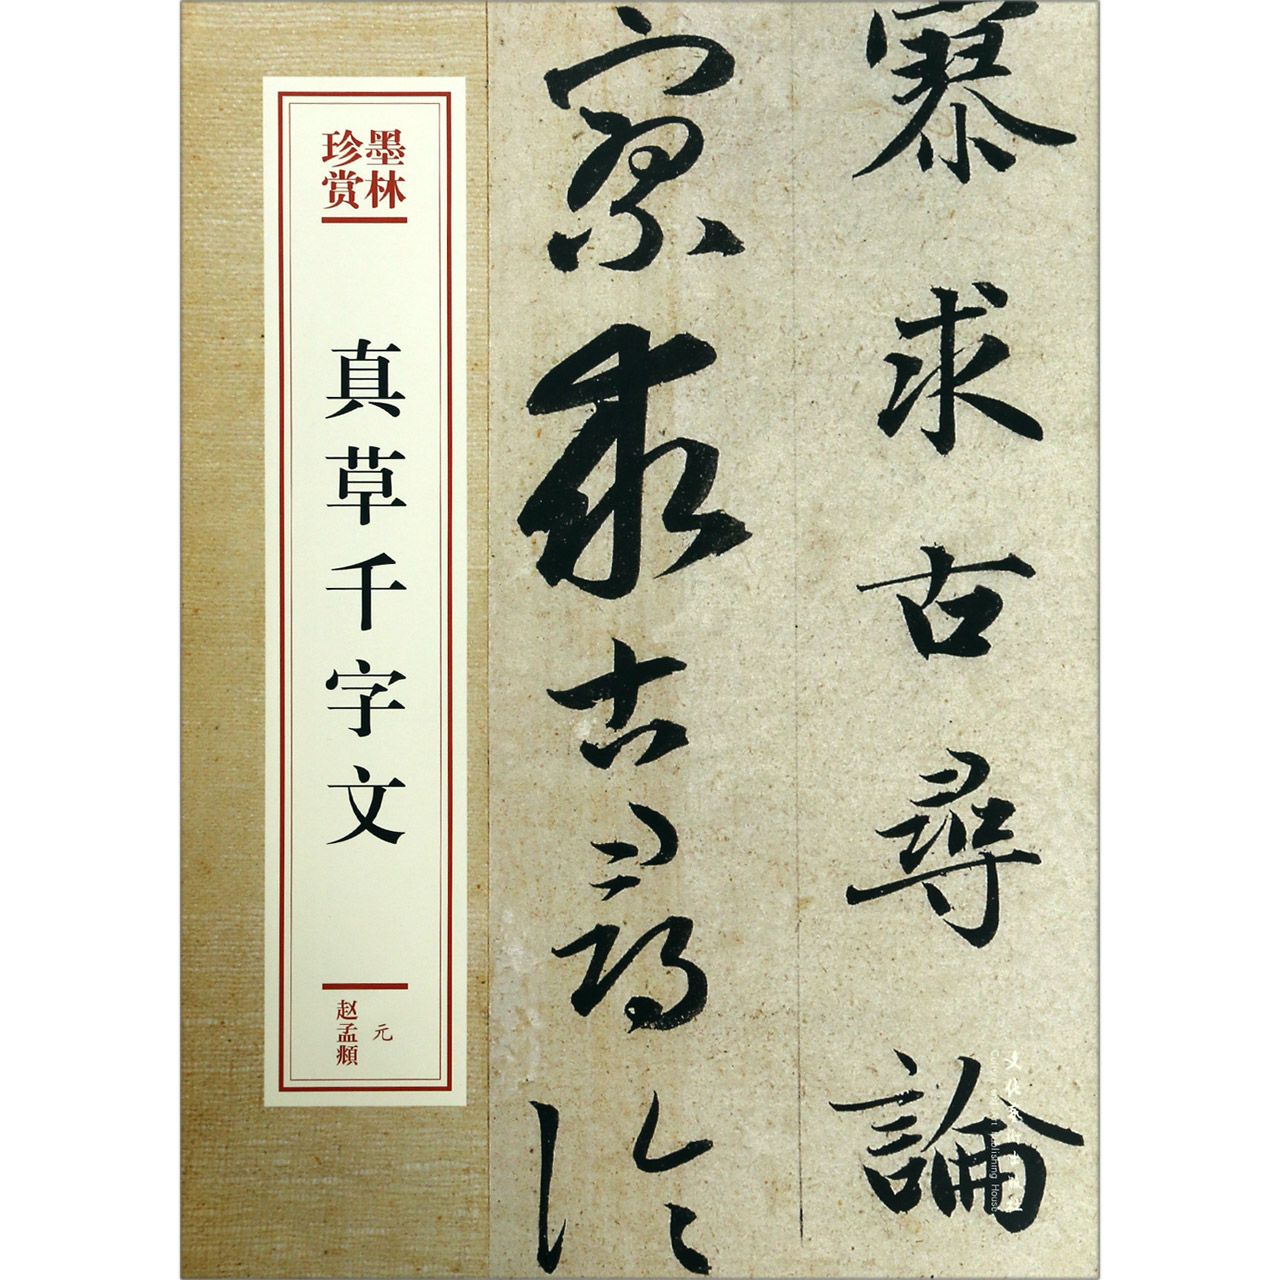 墨林
珍赏
真草千字文
元
赵孟頫
寥求古尋論
寥求古尋論
Publishing House